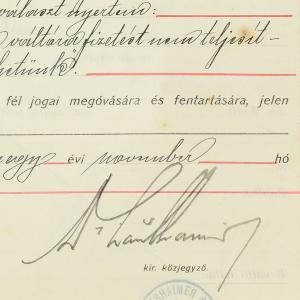 választ nyertem:
váltóra fizetést nem teljesít-
hetünk".
fél jogai megóvására és fentartására, jelen
négy évi november hó
Dr
kir. közjegyző.
RHAIMER